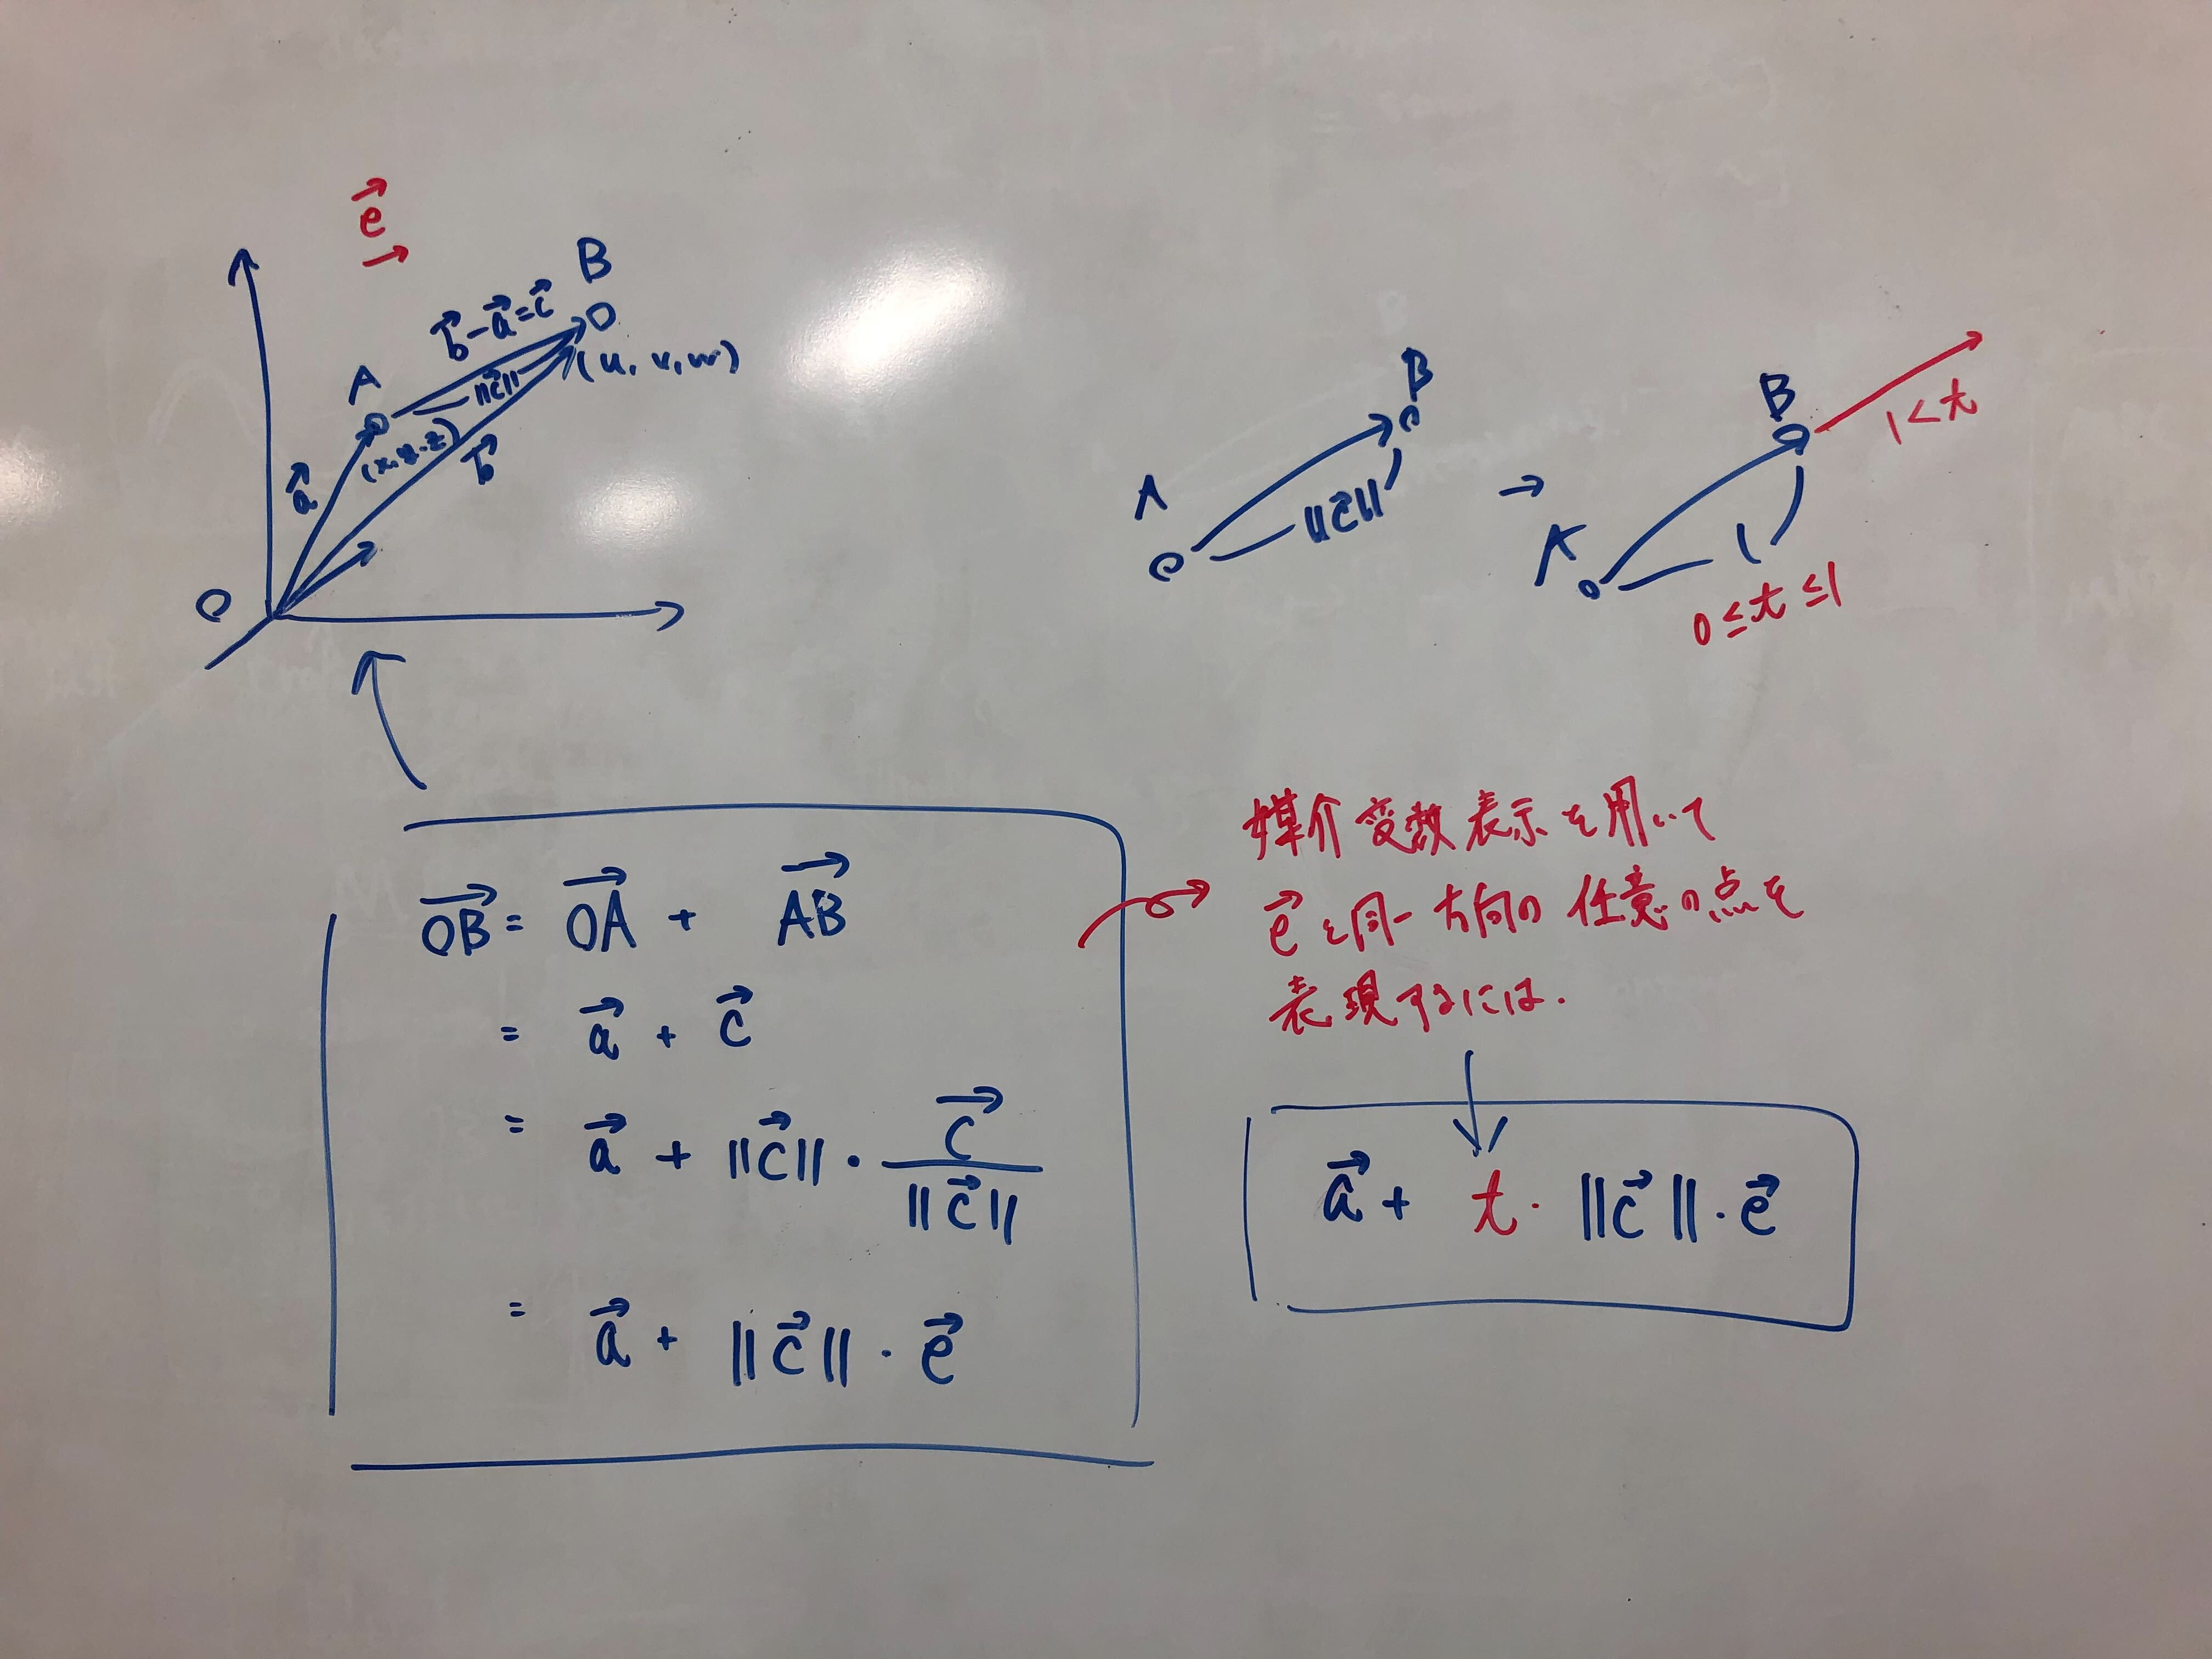 e⃗
B
b⃗-a⃗=c⃗
(u, v, w)
A
‖c⃗‖
(x, y, z)
a⃗
b⃗
O
A
B
‖c⃗‖
→
A
B
1
1<t
0≦t≦1
OB⃗ = OA⃗ + AB⃗
= a⃗ + c⃗
= a⃗ + ‖c⃗‖・c⃗/‖c⃗‖
= a⃗ + ‖c⃗‖・e⃗
媒介変数表示を用いて
e⃗と同一方向の任意の点を
表現するには.
a⃗ + t・‖c⃗‖・e⃗